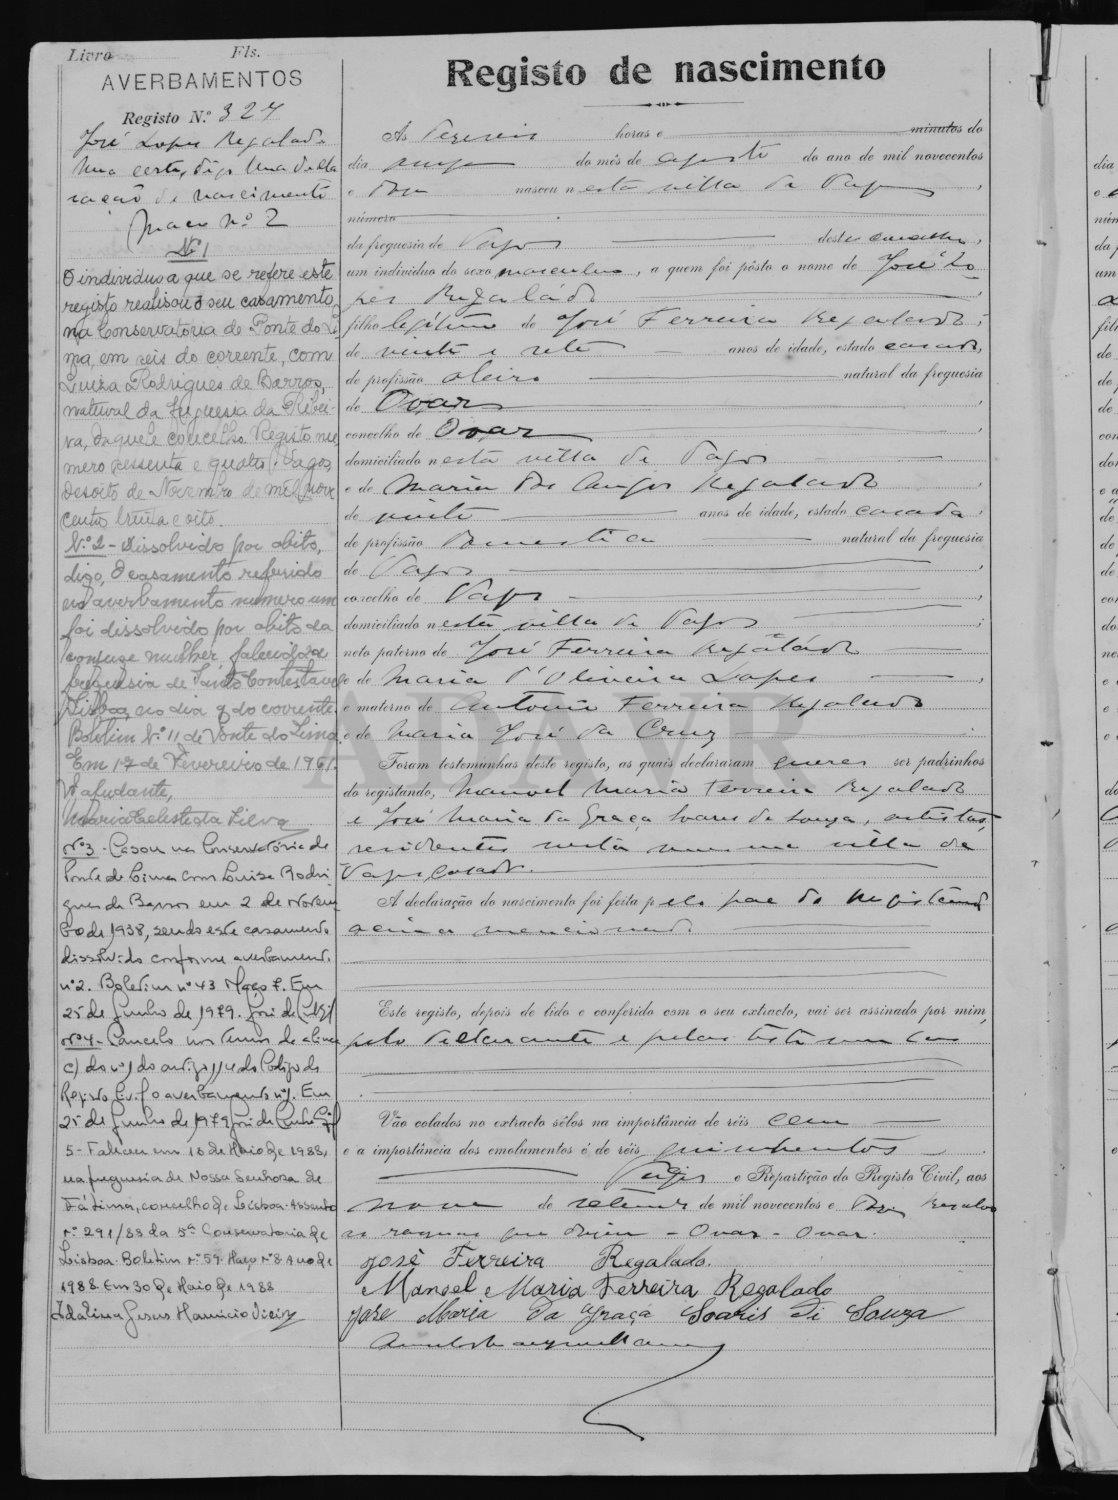 Livro Fls.
AVERBAMENTOS
Registo N.º 327
José Lopes Regalado
Uma certa, digo Uma decla
ração de nascimento
Maço nº 2
Nº 1
O individuo a que se refere este
registo realisou o seu casamento,
na Conservatoria de Ponte do Li
ma, em seis do corrente, com
Luiza Rodrigues de Barros,
natural da freguesia da Ribei-
ra, daquele concelho. Registo nu
mero sessenta e quatro. Vagos,
desoito de Novembro de mil nove
centos trinta e oito.
N.º 2 - Dissolvido por obito,
digo, O casamento referido
no averbamento numero um
foi dissolvido por obito da
conjuge mulher, falecida na
freguesia de Santo Contestavel
Lisboa, no dia 9 do corrente.
Boletim N.º 11 de Ponte do Lima.
Em 17 de Fevereiro de 1961.
O ajudante,
Maria Celeste da Silva
Nº 3 - Casou na Conservatória de
Ponte de Lima com Luisa Rodri
gues de Barros em 2 de Novem
bro de 1938, sendo este casamento
dissolvido conforme averbamento
nº 2. Boletim nº 43 Maço 7. Em
25 de Junho de 1979. José da Cunha Gil
Nº 4 - Cancelo nos termos da alinea
c) do nº 1 do artigo do Codigo do
Registo Civil o averbamento nº 1. Em
25 de Junho de 1979 José da Cunha Gil
5 - Faleceu em 18 de Maio de 1988,
na freguesia de Nossa Senhora de
Fátima, concelho de Lisboa. Assento
nº 291/88 da 5ª Conservatoria de
Lisboa. Boletim nº 59. Maço nº 8 Ano de
1988. Em 30 de Maio de 1988
Idalina Jesus Mauricio Vieira
Registo de nascimento
Às dezeseis horas e minutos do
dia onze do mês de agosto do ano de mil novecentos
e doze nasceu nesta villa de Vagos,
número
da freguesia de Vagos deste concelho,
um indivíduo do sexo masculino, a quem foi pôsto o nome de José Lo
pes Regaládo
filho legitimo de José Ferreira Regalado,
de vinte e sete anos de idade, estado casado,
de profissão oleiro natural da freguesia
de Ovar
concelho de Ovar
domiciliado nesta villa de Vagos
e de Maria dos Anjos Regalado
de vinte anos de idade, estado casada,
de profissão domestica natural da freguesia
de Vagos
concelho de Vagos
domiciliado nesta villa de Vagos
neto paterno de José Ferreira Regaládo
e de Maria d'Oliveira Lopes
e materno de Antonio Ferreira Regalado
e de Maria José da Cruz
Foram testemunhas deste registo, as quais declararam querer ser padrinhos
do registando, Manoel Maria Ferreira Regalado
e José Maria da Graça Soares de Souza, artistas,
residentes nesta mesma villa de
Vagos, casados.
A declaração do nascimento foi feita pelo pae do registando
acima mencionado
Este registo, depois de lido e conferido com o seu extracto, vai ser assinado por mim,
pelo declarante e pelas testemunhas
Vão colados no extracto sêlos na importância de réis cem
e a importância dos emolumentos é de réis quinhentos
Vagos e Repartição do Registo Civil, aos
nove de setembro de mil novecentos e doze Resalvo
as rasuras que dizem - Ovar - Ovar.
José Ferreira Regalado.
Manoel Maria Ferreira Regalado
José Maria da Graça Soaris di Souza
ADAVR